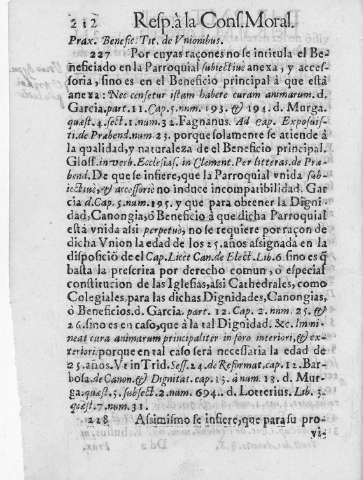 212 Resp. à la Cons. Moral.
Prax. Benefic. Tit. de Vnionibus.
227 Por cuyas raçones no se intitula el Be-
neficiado en la Parroquial subiectiuè anexa, y acces-
soria, sino es en el Beneficio principal à que està
anexa: Nec censetur istam habere curam animarum. d.
Garcia part. 11. Cap. 5. num. 193. & 194. d. Murga.
quæst. 4. sect. 1. num. 32. Fagnanus. Ad cap. Exposuis-
ti. de Præbend. num. 23. porque solamente se atiende à
la qualidad, y naturaleza de el Beneficio principal.
Gloss. in verb. Ecclesias. in Clement. Per litteras. de Præ-
bend. De que se infiere, que la Parroquial vnida sub-
iectiuè, & accessoriè no induce incompatibilidad. Gar
cia d. Cap. 5. num. 195. y que para obtener la Digni-
dad, Canongia, ò Beneficio à que dicha Parroquial
està vnida assi perpetuò, no se requiere por raçon de
dicha Vnion la edad de los 25. años assignada en la
disposiciõ de el Cap. Licèt Can. de Elect. Lib. 6. sino es q̃
basta la prescrita por derecho comun, ò especial
constitucion de las Iglesias, assi Cathedrales, como
Colegiales, para las dichas Dignidades, Canongias,
ò Beneficios. d. Garcia. part. 12. Cap. 2. num. 25. &
26. sino es en caso, que à la tal Dignidad. &c. Immi-
neat cura animarum principaliter in foro interiori, & ex-
teriori: porque en tal caso serà necessaria la edad de
25. años. Vt in Trid. Sess. 24. de Reformat. cap. 12. Bar-
bosa. de Canon. & Dignitat. cap. 13. à num. 13. d. Mur-
ga. quæst. 5. subsect. 2. num. 694. d. Lotterius. Lib. 3.
quæst. 7. num. 31.
228 Assimismo se infiere, que para su pro
vi-